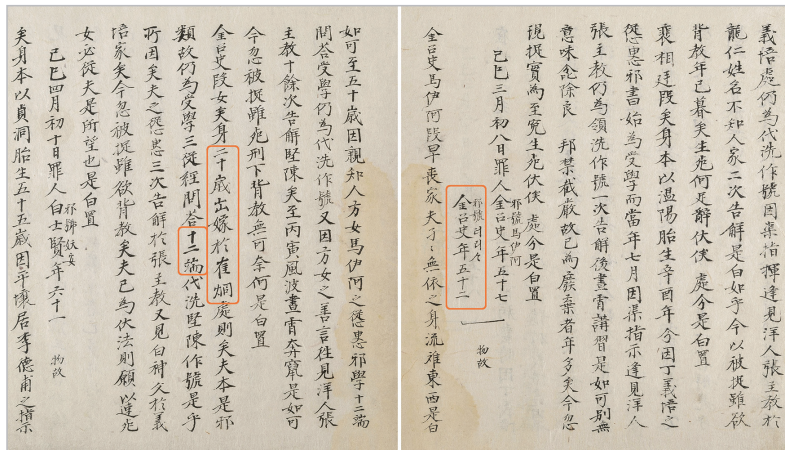 義悟處仍爲代洗作號因渠指揮逢見洋人張主敎於
龍仁姓名不知人家二次告解是白如乎今以被捉雖欲
背敎年已暮矣生死何足辭伏俟 處分是白置
裵相廷段矣身本以溫陽胎生辛酉年分因丁義悟之
慫慂邪書始爲受學而當年七月因渠指示逢見洋人
張主敎仍爲領洗作號一次告解後晝宵講習是如可別無
意味念除良 邦禁截嚴故已爲廢棄者年多矣今忽
現捉實爲至寃生死伏俟 處分是白置
己巳三月初八日罪人金召史年五十七
邪號馬伊阿
金召史年五十二
邪號
物故
金召史馬伊阿段早喪家夫子無依之身流離東西是白
如可至五十歲因親知人方女馬伊阿之慫慂邪學十二端
問答受學仍爲代洗作號又因方女之善言往見洋人張
主敎十餘次告解堅陳矣至丙寅風波晝宵奔竄是如可
今忽被捉雖死刑下背敎無可奈何是白置
金召史段女矣身二十歲出嫁於崔炯處則矣夫本是邪
類故仍爲受學三從經問答十二端代洗堅陳作號是乎
所因矣夫之慫慂三次告解於張主敎又見白神父於義
培家矣今忽被捉雖欲背敎矣夫已爲伏法則願以速死
女必從夫是所望也是白置
己巳四月初十日罪人白士賢年六十一
邪號妖妄
物故
矣身本以貞洞胎生五十五歲因平壤居李德甫之指示